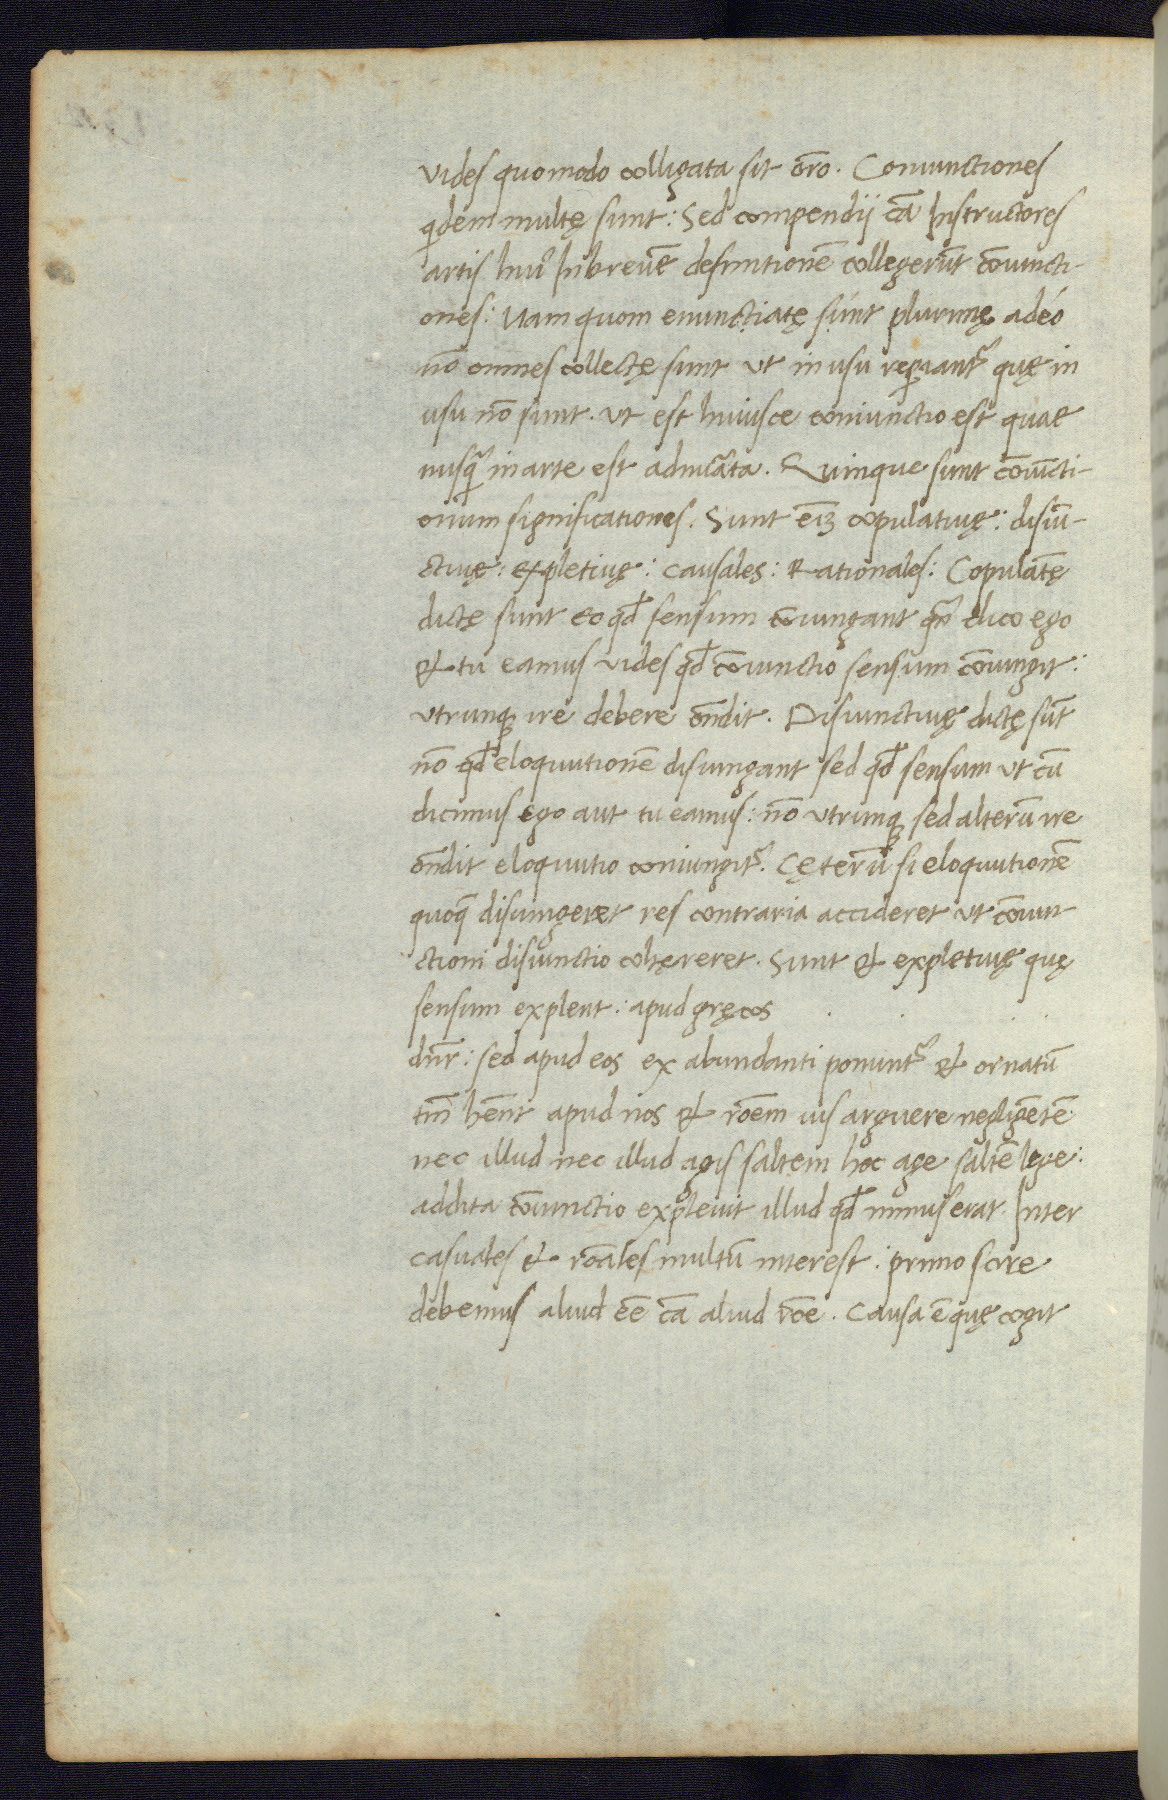 vides quomodo colligata sit or̃o. Coniunctiones
qͥdem multę sunt: Sed compendii cã Instructores
artis huiꝰ In breuẽ definitionẽ collegerũt cõiuncti-
ones: Nam quom enunctiatę sunt plurimę adeó
nõ omnes collectę sunt ut in usu reꝑiant᷑ quę in
usu nõ sunt. ut est huiusce coniunctio est quae
nusꝗ̃ in arte est adnũata. Quinque sunt cõiũcti-
onum significationes. Sunt em̃ copulatiuę: disiũ-
ctiuę: expletiuę: causales: Rationales: Copulatę̃
dictę sunt eo qđ sensum cõiungant qñ dico ego
& tu eamus vides qđ cõiunctio sensum cõiungit:
utrunqꝫ ire debere oñdit. Disiunctiuę dictę sũt
nõ qđ eloquutionẽ disiungant sed qđ sensum ut cũ
dicimus ego aut tu eamus: nõ utrunqꝫ sed alterũ ire
oñdit eloquutio coniungit᷑. Cęterũ si eloquutionẽ
quoqꝫ disiungeret res contraria accideret ut cõiun
ctioni disiunctio cohęreret. Sunt & expletiuę quę
sensum explent: apud gręcos
dñr: sed apud eos ex abundanti ponunt᷑ & ornatũ
tm̃ hẽnt apud nos & rõem uis arguere negligẽtẽ
nec illud nec illud agis saltem hoc age saltẽ lege:
addita cõiunctio expleuit illud qđ minus erat. Inter
casuales & rõales multũ interest: primo scire
debemus aliud eẽ cã aliud rõe. Causa ẽ quę cogit